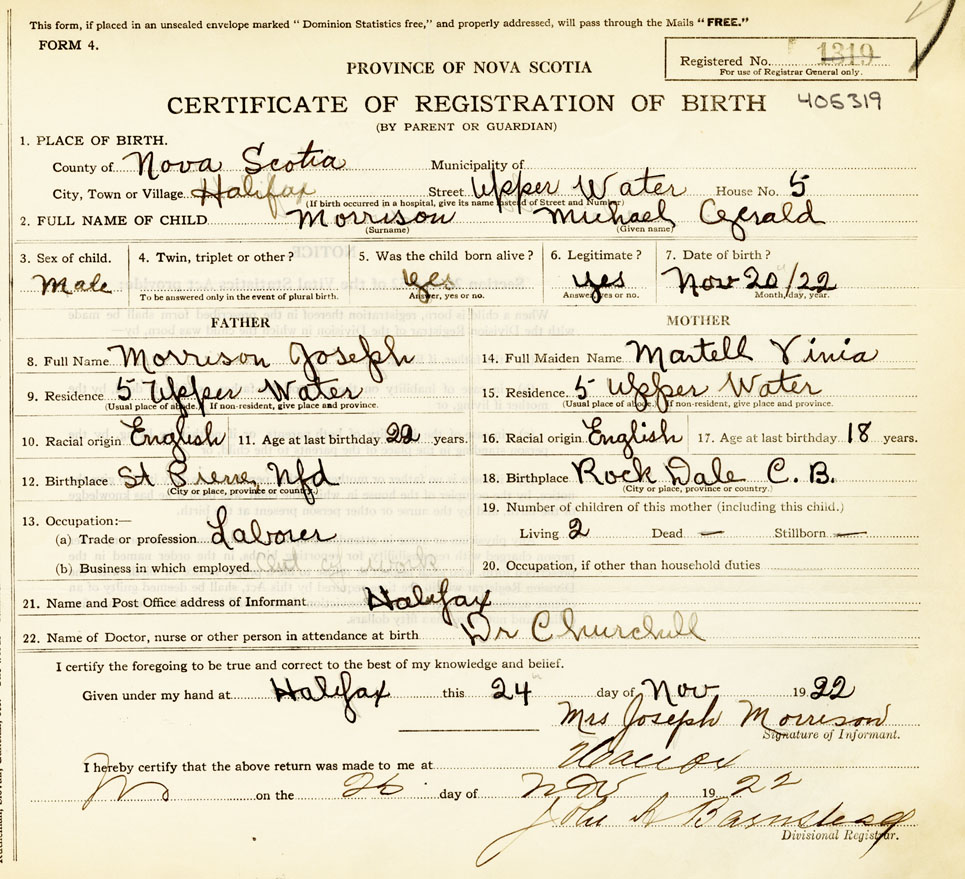 This form, if placed in an unsealed envelope marked "Dominion Statistics free," and properly addressed, will pass through the Mails "FREE."
FORM 4.
Registered No. 1319
For use of Registrar General only.
PROVINCE OF NOVA SCOTIA
CERTIFICATE OF REGISTRATION OF BIRTH 405319
(BY PARENT OR GUARDIAN)
1. PLACE OF BIRTH.
County of Nova Scotia Municipality of
City, Town or Village Halifax Street Upper Water House No. 5
(If birth occurred in a hospital, give its name instead of Street and Number)
2. FULL NAME OF CHILD Morrison Michael Gerald
(Surname) (Given name)
3. Sex of child. 4. Twin, triplet or other? 5. Was the child born alive? 6. Legitimate? 7. Date of birth?
Male Yes yes Nov 20/22
To be answered only in the event of plural birth. Answer, yes or no. Answer, yes or no. Month, day, year.
FATHER MOTHER
8. Full Name Morrison Joseph 14. Full Maiden Name Martell Vinia
9. Residence 5 Upper Water 15. Residence 5 Upper Water
(Usual place of abode. If non-resident, give place and province. (Usual place of abode.) If non-resident, give place and province.
10. Racial origin English 11. Age at last birthday 22 years. 16. Racial origin English 17. Age at last birthday 18 years.
12. Birthplace St Pierre, Nfd 18. Birthplace Rock Dale C. B.
(City or place, province or country.) (City or place, province or country.)
13. Occupation:— 19. Number of children of this mother (including this child.)
(a) Trade or profession Laborer Living 2 Dead — Stillborn —
(b) Business in which employed Out of work 20. Occupation, if other than household duties
21. Name and Post Office address of Informant Halifax
22. Name of Doctor, nurse or other person in attendance at birth Dr Churchill
I certify the foregoing to be true and correct to the best of my knowledge and belief.
Given under my hand at Halifax this 24 day of Nov 1922
Mrs Joseph Morrison
Signature of Informant.
I hereby certify that the above return was made to me at Halifax
NS on the 26 day of Nov 1922
John A Barnstead
Divisional Registrar.